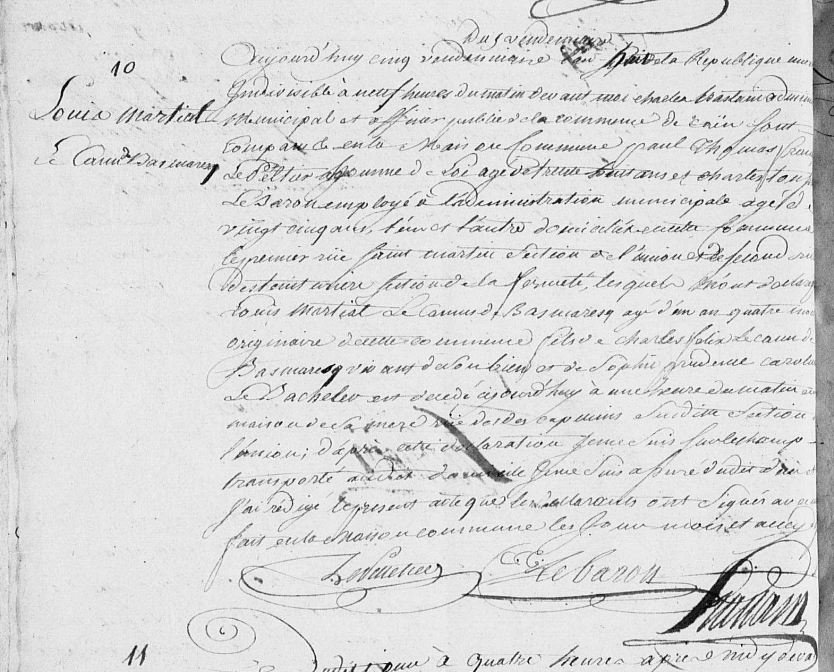 Du 5 vendemiaire
10
aujourd'huy cinq vendemiaire an huit de la Republique une
Indivisible à neuf heures du matin devant moi charles
Louis Martial
municipal et officier public de la commune de Caën sont
comparu en la Maison Commune paul Thomas
Le Camus Basmaresq
Le Peltier homme de Loi agé de trente huit ans et charles
Le Baron employé à l'administration municipale agé de
vingt cinq ans, l'un et l'autre domiciliés en cette commune
le premier rüe saint martin Section de l'union et le second rue
section de la fermeté, lesquels m'ont declaré
Louis Martial Le Camus de Basmaresq agé d'un an quatre mois
originaire de cette commune fils de charles felix Le camus
Basmaresq vivant de son bien et de Sophie prudence caroline
Le Bachelier est decedé aujourd'huy à une heure du matin en
maison de sa mere rüe des capucins Susditte Section
l'union; d'après cette declaration Je me suis sur le champ
transporté audit domicile Je me suis assuré dudit décès
J'ai redigé le present acte que les déclarants ont Signés avec
fait en la maison commune les jour mois et an cy
Le Baron
11
dudit jour à quatre heures apres midy devant